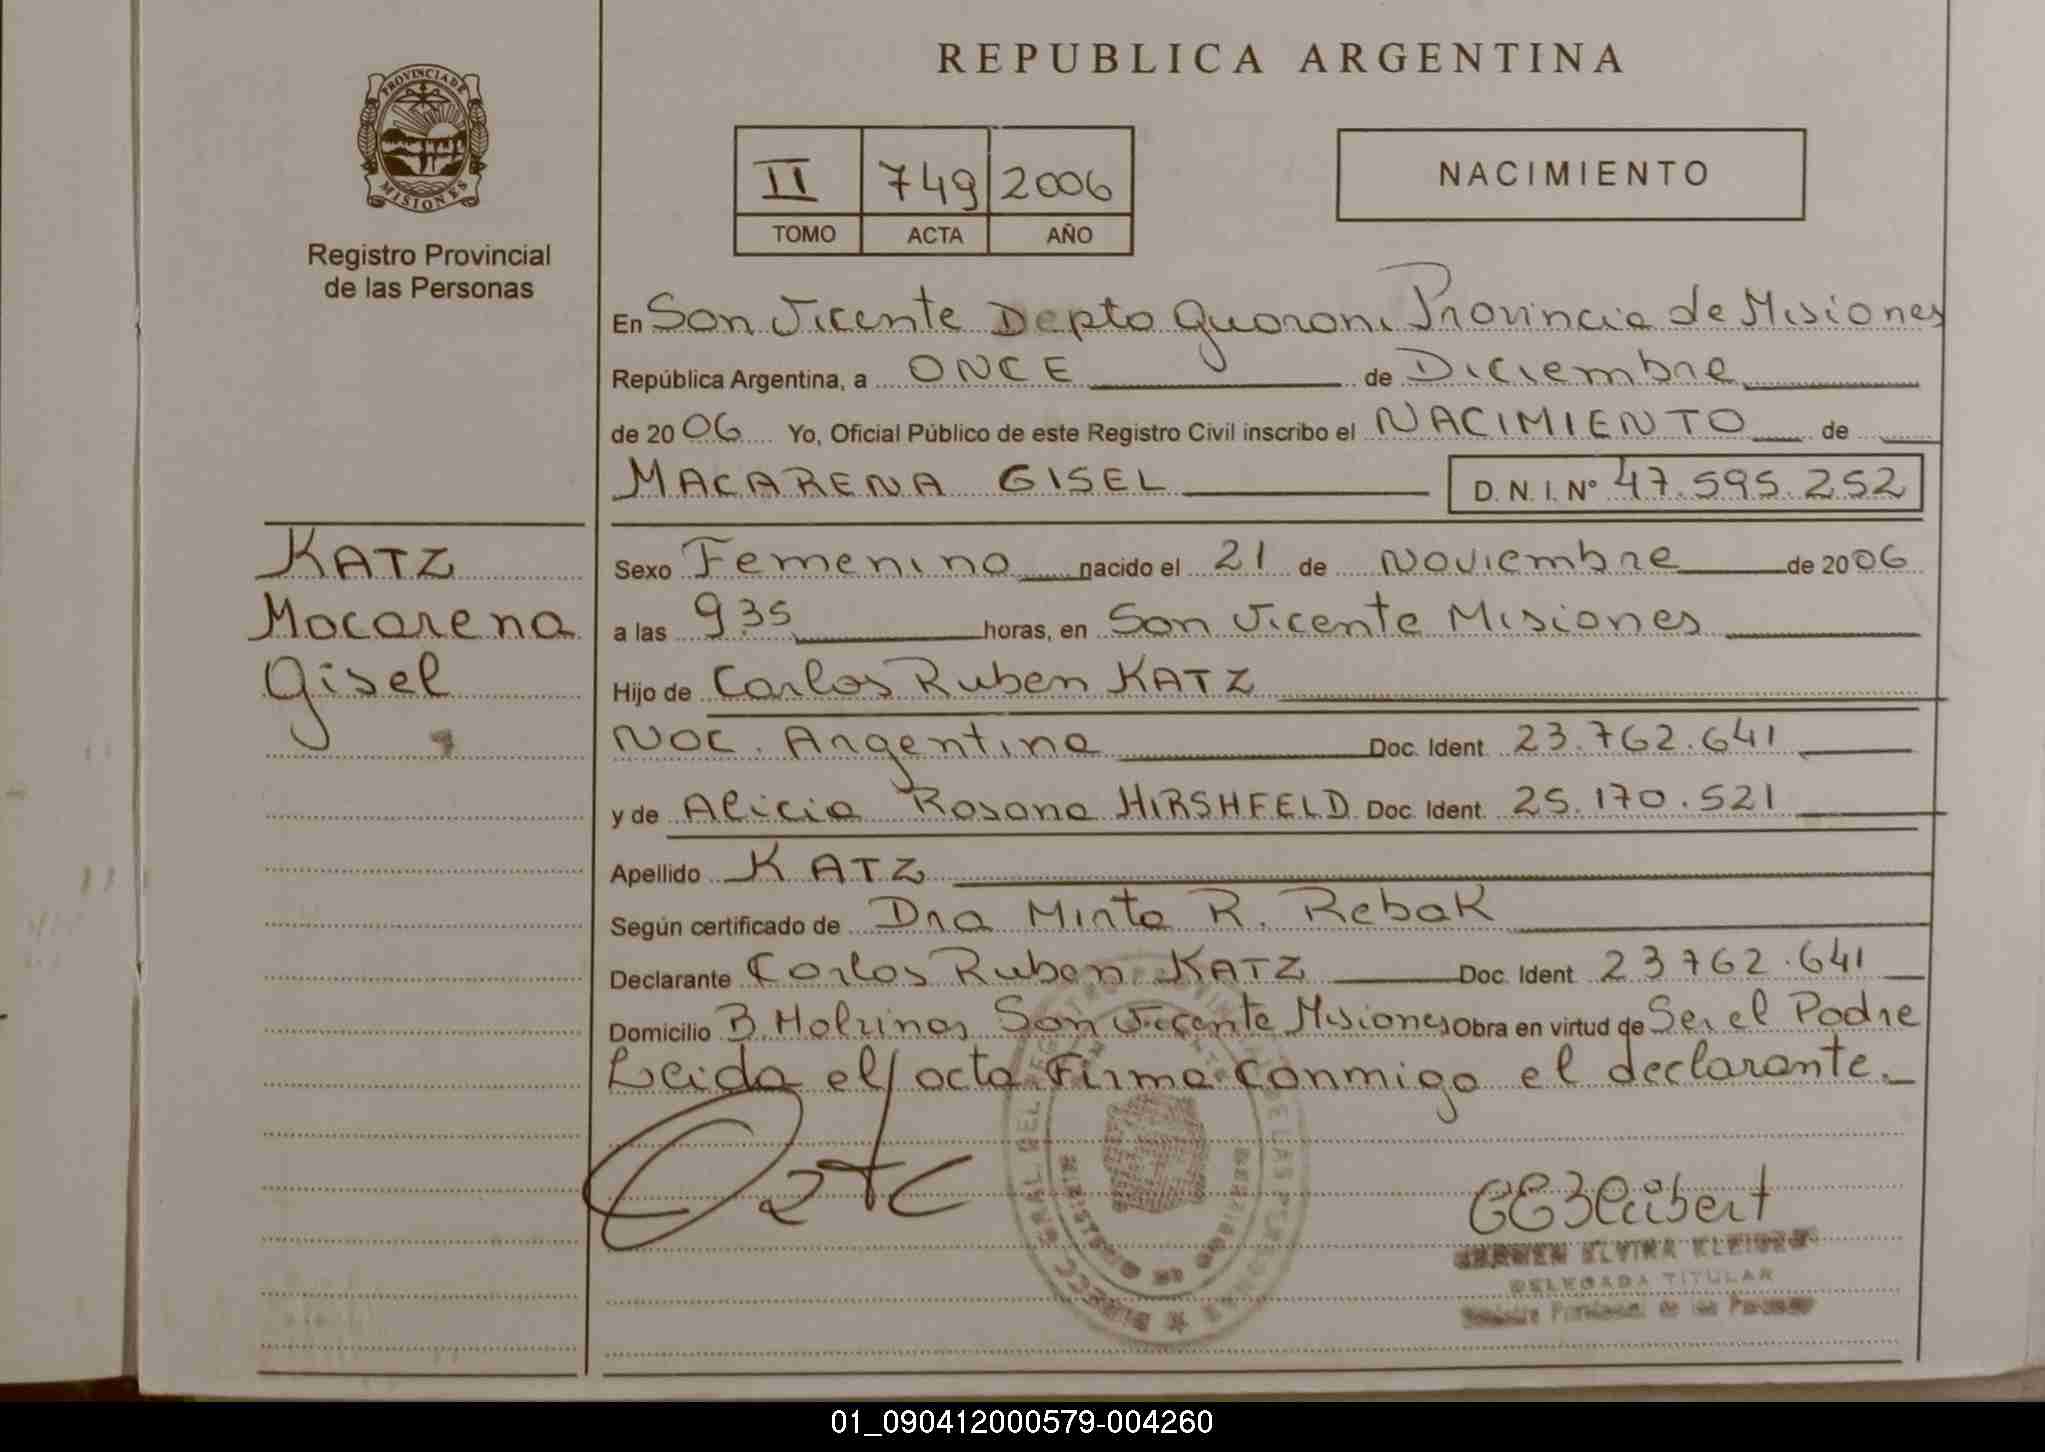 REPUBLICA ARGENTINA
PROVINCIA DE
MISIONES
Registro Provincial
de las Personas
II 749 2006
TOMO ACTA AÑO
NACIMIENTO
En San Vicente Depto Guarani Provincia de Misiones
República Argentina, a ONCE de Diciembre
de 2006 Yo, Oficial Público de este Registro Civil inscribo el NACIMIENTO de
MACARENA GISEL D.N.I. Nº 47.595.252
KATZ
Macarena
Gisel
Sexo Femenino nacido el 21 de Noviembre de 2006
a las 9 35 horas, en San Vicente Misiones
Hijo de Carlos Ruben KATZ
Nac. Argentina Doc. Ident. 23.762.641
y de Alicia Rosana HIRSHFELD Doc. Ident. 25.170.521
Apellido KATZ
Según certificado de Dra Mirta R. Rebak
Declarante Carlos Ruben KATZ Doc. Ident. 23762.641
Domicilio B. Malvinas San Vicente Misiones Obra en virtud de Ser el Padre
Leida el acta Firma conmigo el declarante.
ELVIRA
DELEGADA TITULAR
Registro Provincial de las Personas
01_090412000579-004260